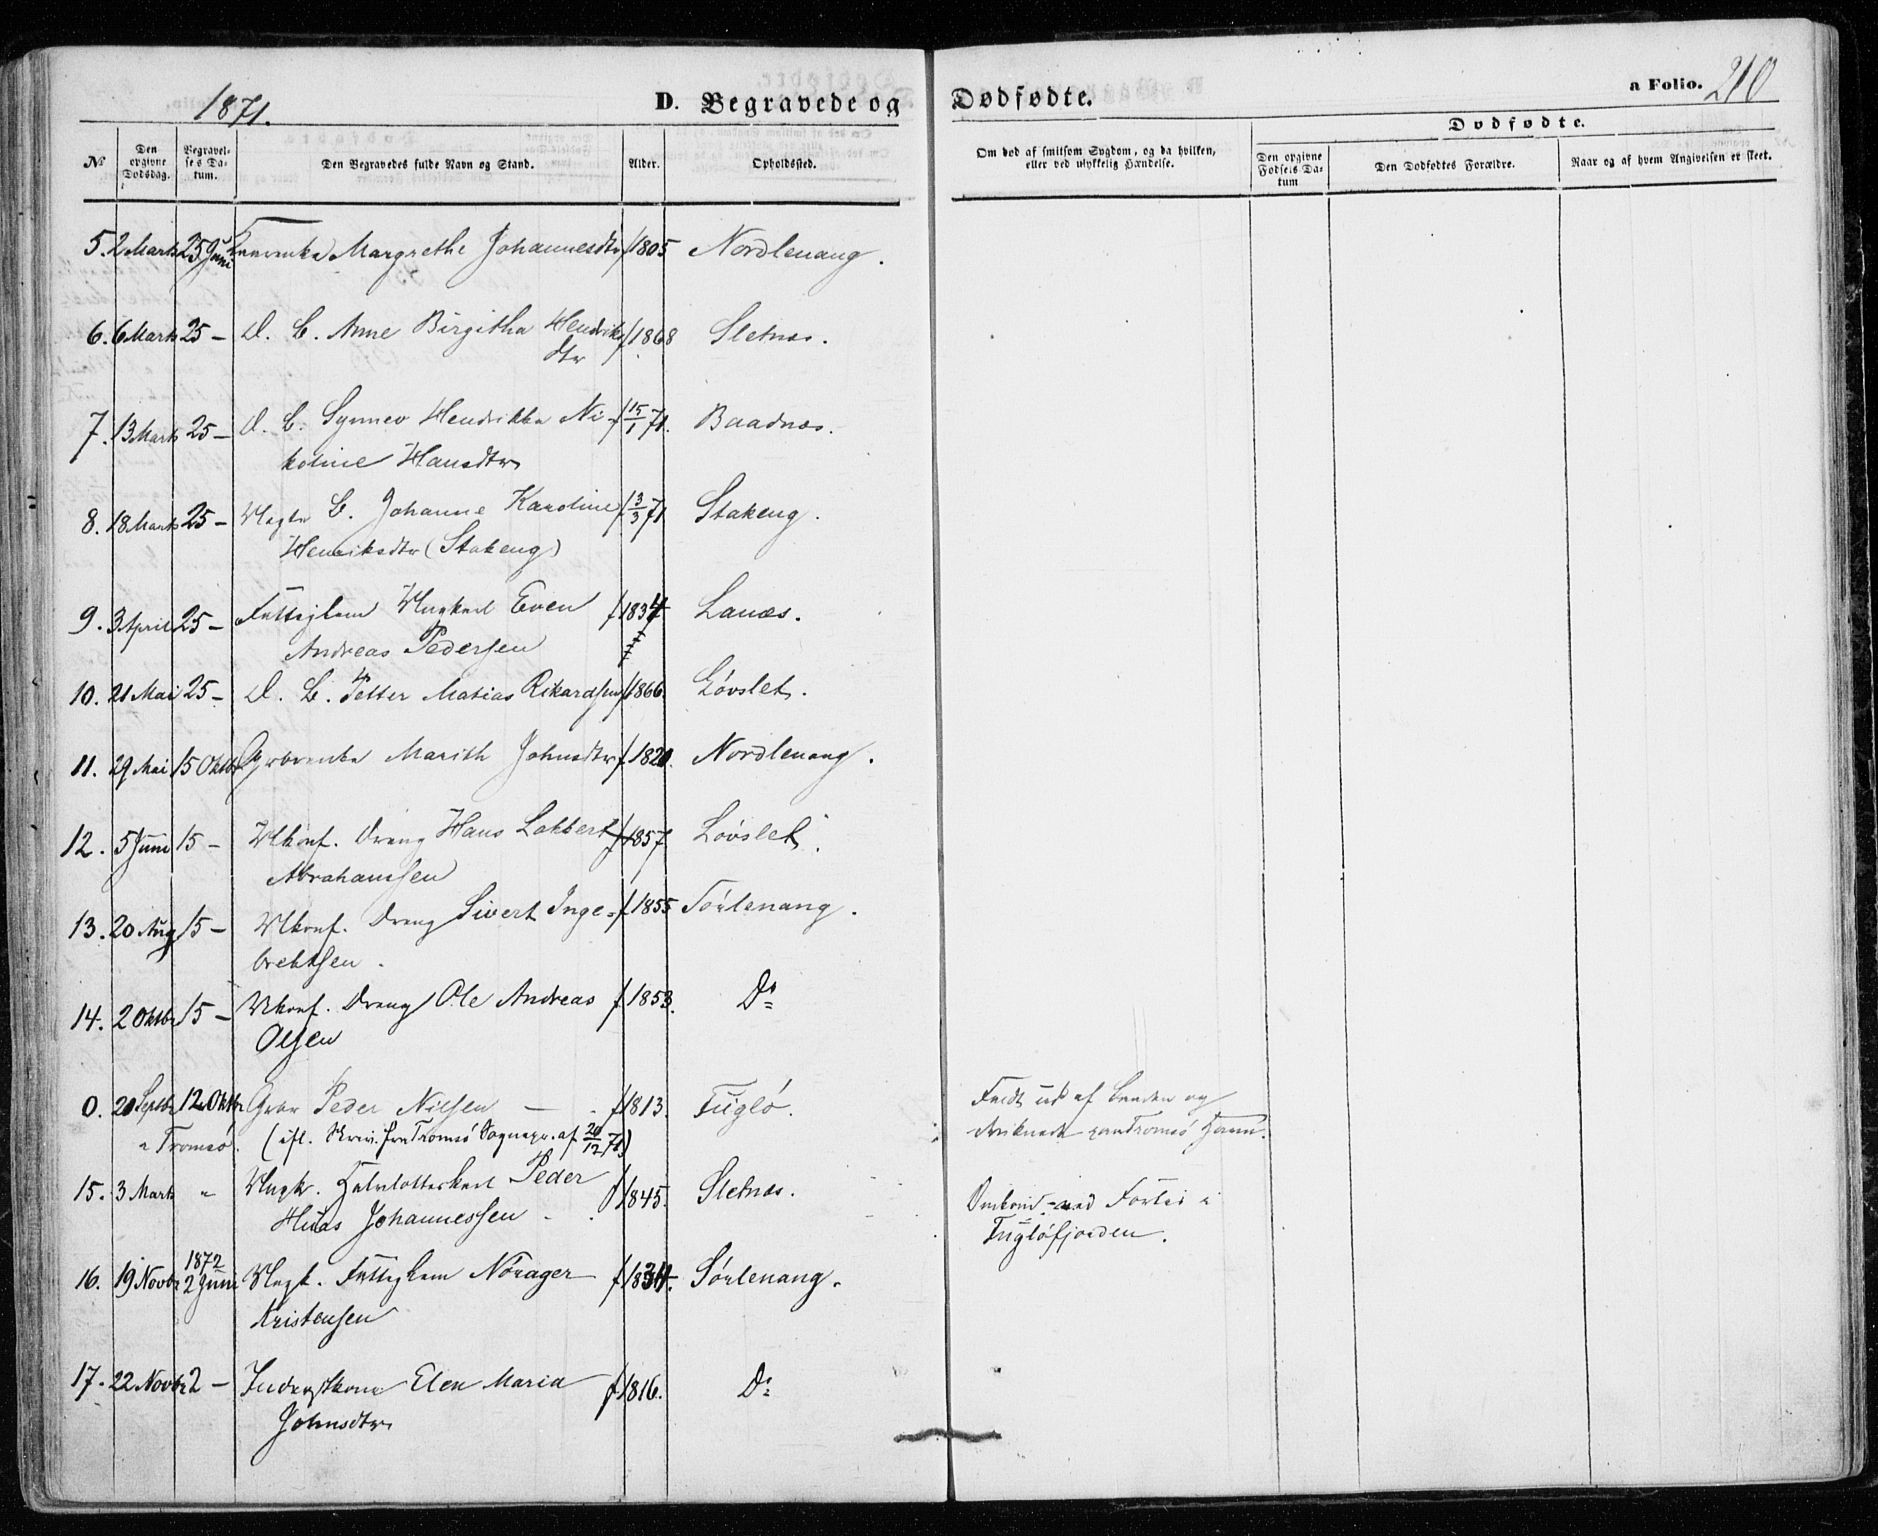 1871.
D. Begravede og Dødfødte.
a Folio. 210
Dødfødte.
No
Den opgivne Dødsdag.
Begravelses Datum.
Den Begravedes fulde Navn og Stand.
Alder.
Opholdssted.
Om død af smitsom Sygdom, og da hvilken, eller ved ulykkelig Hændelse.
Den opgivne Fødsels-Datum
Den Dødfødtes Forældre.
Naar og af hvem Angivelsen er skeet.
5. 2 Marts 25 Juni Margrethe Johannesdtr f 1805 Nordlenang.
6. 6 Marts 25 – D. B. Anne Birgitha Hendriks f 1868 Sletnæs.
dtr
7. 13 Marts 25 – D. B. Synnev Hendrikka Ni- f 15/1 71. Baadnæs.
koline Hansdtr
8. 18 Marts 25 – B. Johanne Karoline f 3/3 71 Stakeng.
Henriksdtr (Stakeng)
9. 3 April 25 – Fattiglem Ungkarl Even f 1834 Lanæs.
Andreas Pedersen
10. 21 Mai 25 – D. B. Petter Matias Rikardsen f 1866. Løvslet.
11. 29 Mai 15 Oktbr Marith Johnsdtr f 1820. Nordlenang.
12. 5 Juni 15 – Ukonf. Dreng Hans Lakbert f 1857 Løvslet.
Abrahamsen
13. 20 Aug 15 – Ukonf. Dreng Sivert Inge- f 1855 Sørlenang.
brektsen.
14. 2 Oktbr 15 – Ukonf. Dreng Ole Andreas f. 1853. Do
Olsen
0. 20 Septbr 12 Oktbr Peder Nilsen – f 1813. Fuglø. Faldt ud af Baaden og
i Tromsø. (ifl. Skriv. fra Tromsø Sognepr. af 20/12 71) druknede paa Tromsø Havn.
15. 3 Marts " Ungk. Halvlotteskarl Peder f 1845. Sletnæs. Omkom ved Forlis i
Johannessen – Fugløfjorden.
1872
16. 19 Novbr 2 Juni Ungk. Fattiglem Nørager f 1834. Sørlenang.
Kristensen
17. 22 Novbr 2 – Inderstkone Elen Maria f 1816. Do
Johnsdtr